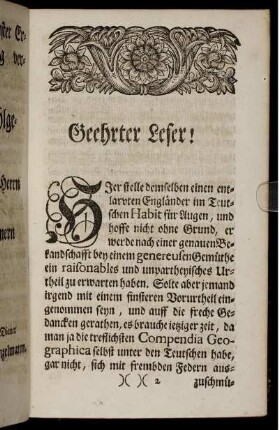 ster Er-
g ver-
olge-
Herrn
nern
Diener
rzelmann.
Geehrter Leser!
HJer stelle demselben einen ent-
larvten Engländer im Teut-
schen Habit für Augen, und
hoffe nicht ohne Grund, er
werde nach einer genauen Be-
kandschafft bey einem genereusen Gemüthe
ein raisonables und unpartheyisches Ur-
theil zu erwarten haben. Solte aber jemand
irgend mit einem finsteren Vorurtheil ein-
genommen seyn, und auff die freche Ge-
dancken gerathen, es brauche ietziger zeit, da
man ja die treflichsten Compendia Geo-
graphica selbst unter den Teutschen habe,
gar nicht, sich mit frembden Federn aus-
)( )( 2 zuschmü-